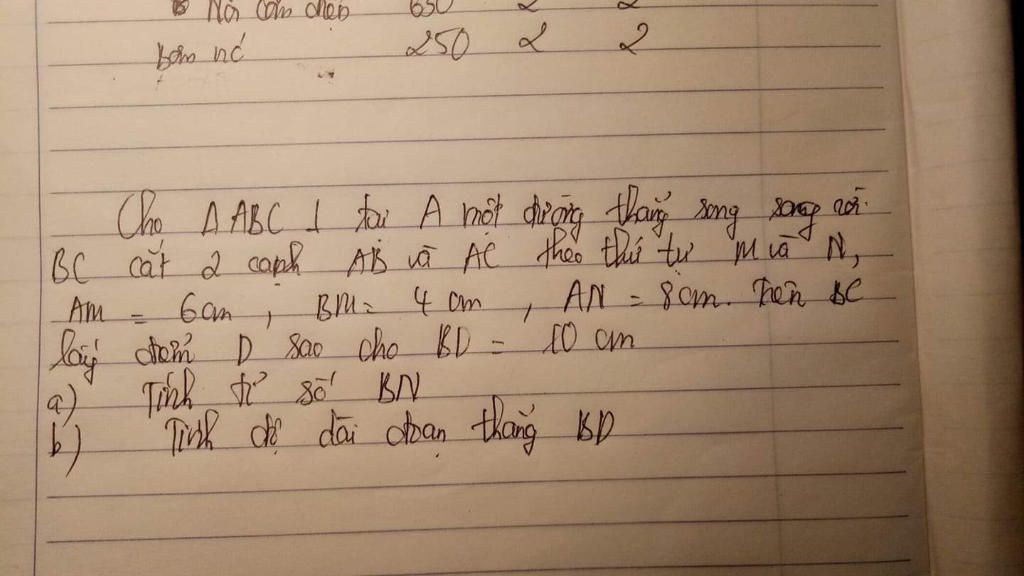 Nồi cơm điện 650 2 2
Bơm nć 250 2 2
Cho Δ ABC ⊥ tại A một đường thẳng song song với
BC cắt 2 cạnh AB và AC theo thứ tự M và N,
AM = 6cm, BM = 4 cm, AN = 8cm. Trên BC
lấy điểm D sao cho BD = 10 cm
a) Tính tỉ số BN
b) Tính độ dài đoạn thẳng BD